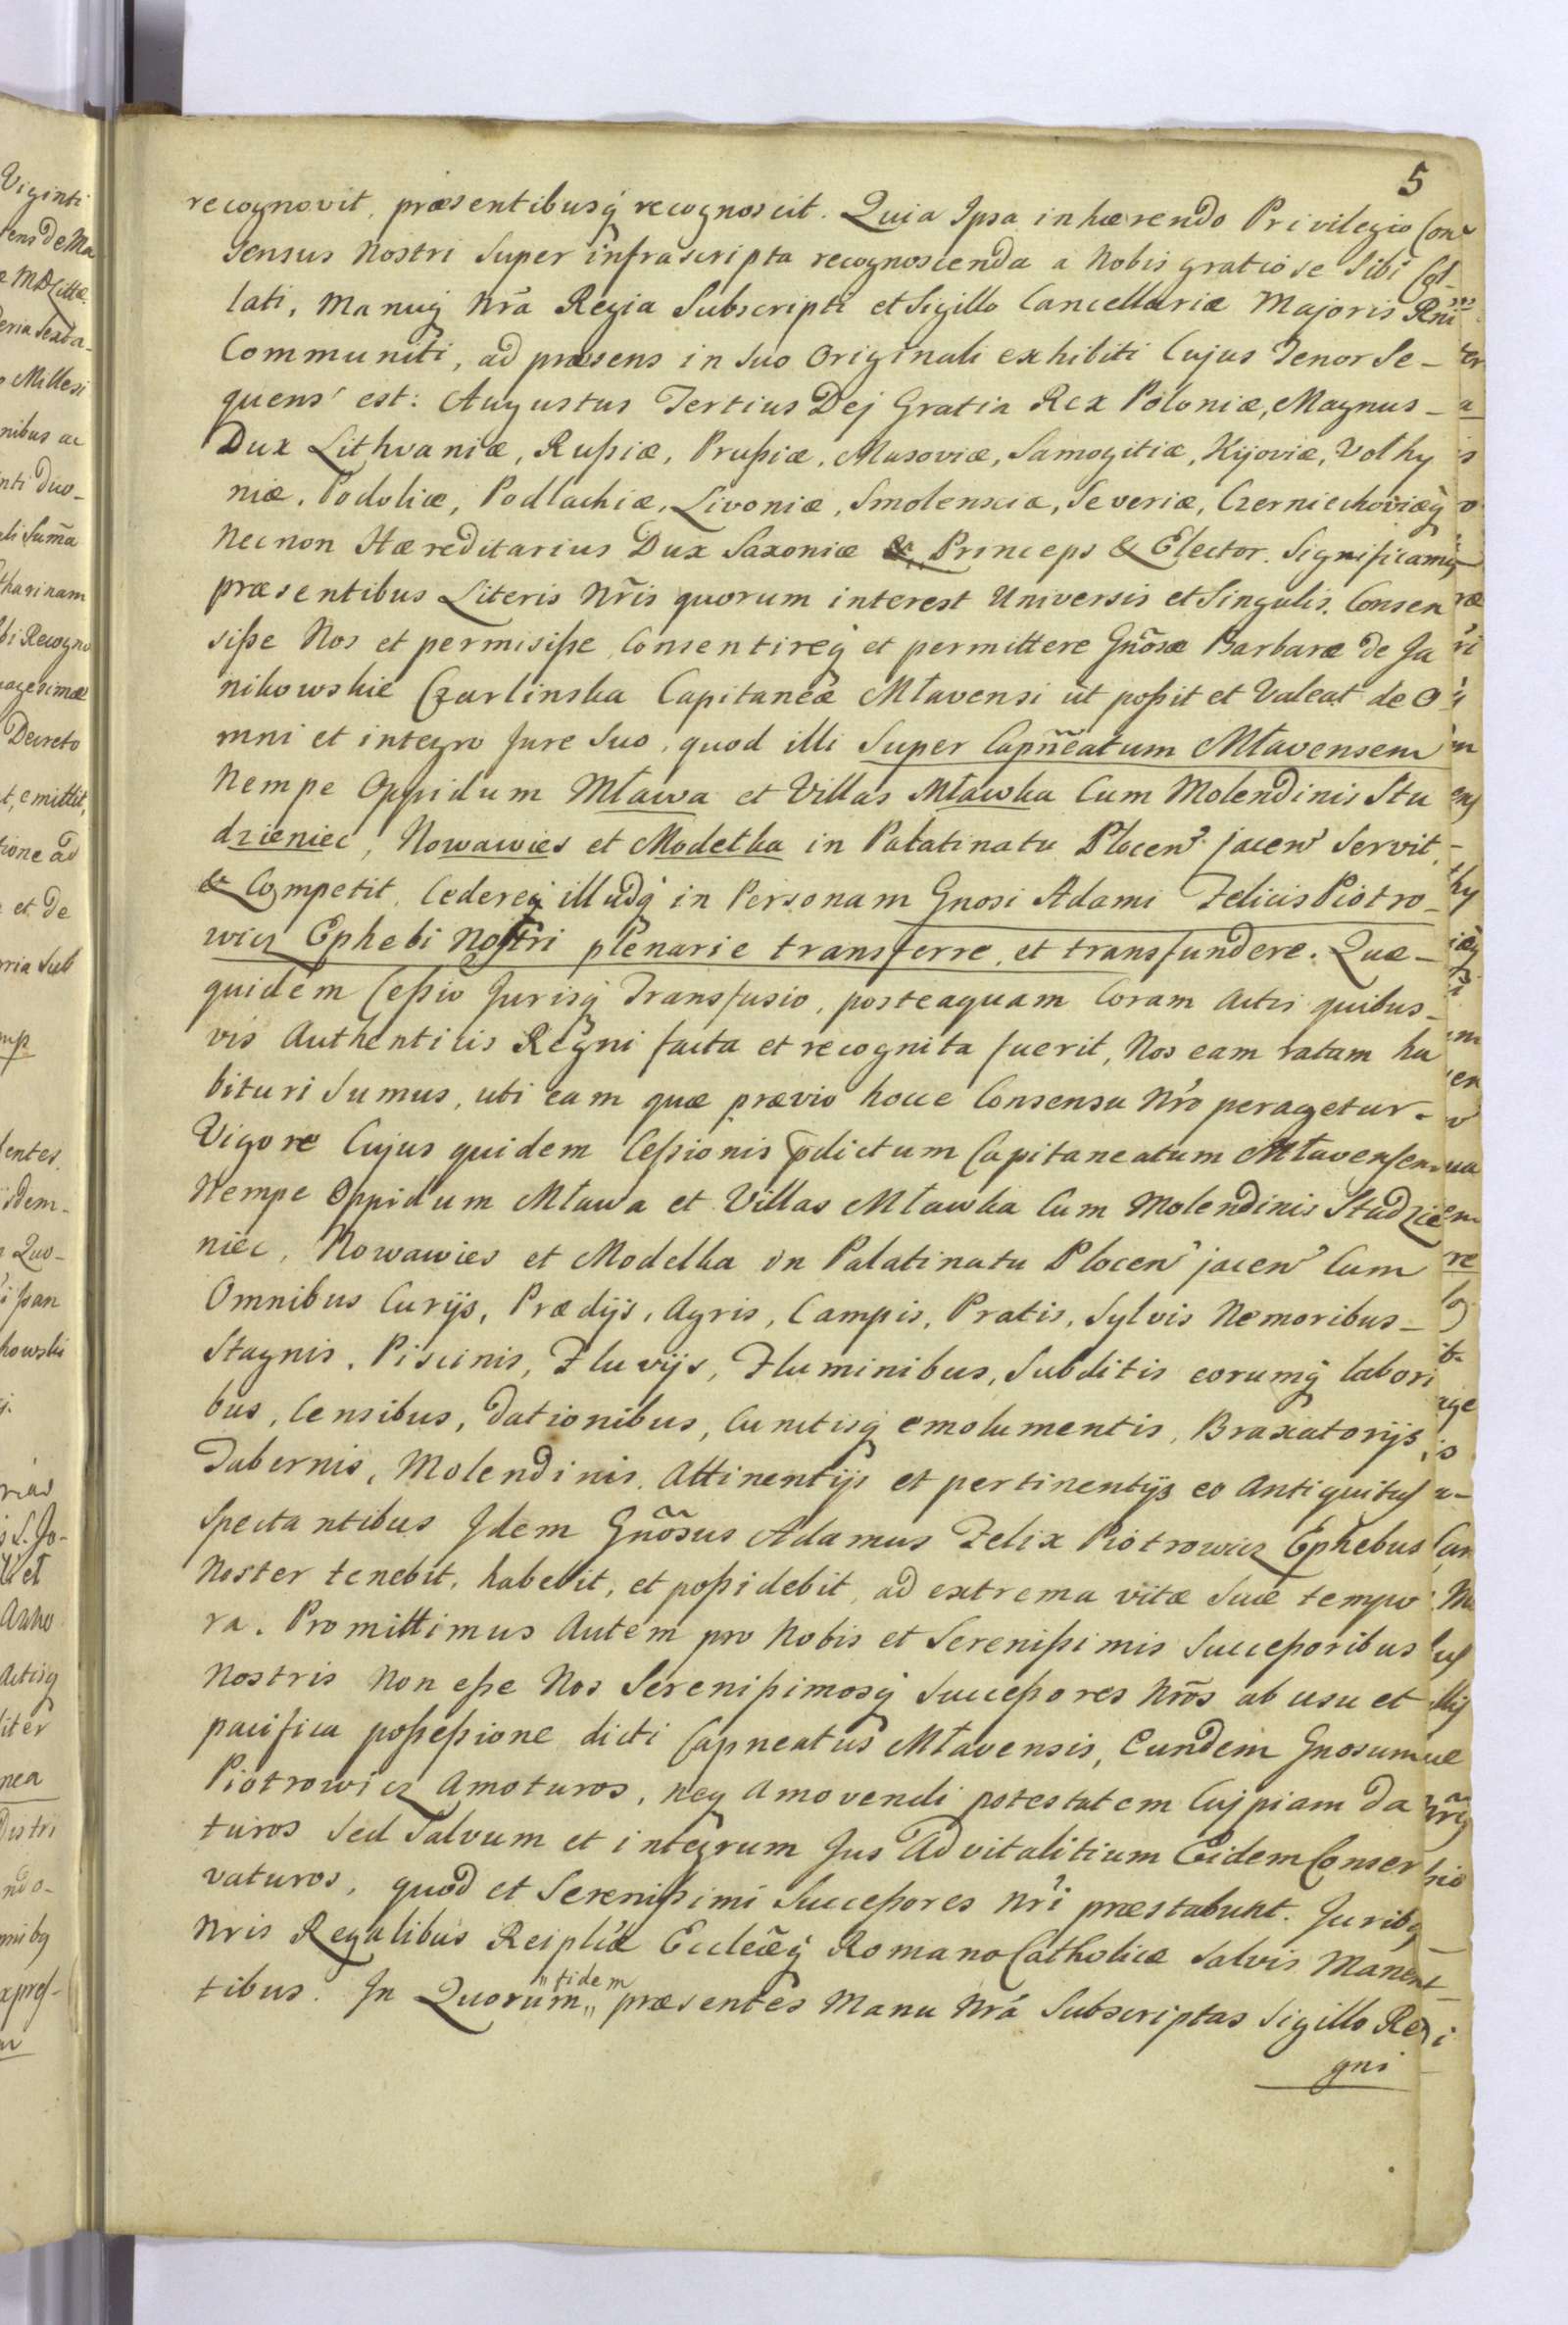 5
recognovit, præsentibusq́ recognoscit. Quia Ipsa inhærendo Privilegio Con
sensus Nostri Super infrascripta recognoscenda a Nobis gratiose Sibi Col-
lati, Manuq́ Nr̃a Regia Subscripti et Sigillo Cancellariæ Majoris Rni
Communiti, ad præsens in Suo Originali exhibiti Cujus Tenor Se-
quens est: Augustus Tertius Dej Gratia Rex Poloniæ, Magnus-
Dux Lithvaniæ, Rußiæ, Prußiæ, Masoviæ, Samogitiæ, Kijoviæ, Volhy
niæ, Podoliæ, Podlachiæ, Livoniæ, Smolensciæ, Severiæ, Czerniechoviæq́
Necnon Hæreditarius Dux Saxoniæ & Princeps & Elector. Significamq
præsentibus Literis Nr̃is quorum interest Universis et Singulis. Consen
siße Nos et permisiße, Consentireq́ et permittere Gñosæ Barbaræ de Ja
nikowskie Czarlinska Capitaneæ Mławensi ut poßit et Valeat de O
mni et integro Jure Suo, quod illi Super Capñeatum Mławensem
Nempe Oppidum Mława et Villas Mławka Cum Molendinis Stu
dzieniec, Nowawies et Modełka in Palatinatu Plocen̉ jacen̉ Servit,
& Competit, Cedereq́ illudq́ in Personam Gnosi Adami Felicis Piotro-
wicz Ephebi Nostri plenarie transferre, et transfundere. Quæ-
quidem Ceßio Jurisq́ Transfusio, posteaquam Coram Actis quibus-
vis Authenticis Regni facta et recognita fuerit, Nos eam ratam ha
bituri Sumus, uti eam quæ prævio hocce Consensu Nr̉o peragetur-
Vigore Cujus quidem Ceßionis p̃dictum Capitaneatum Mławensem
Nempe Oppidum Mława et Villas Mławka Cum Molendinis Studzie
niec, Nowawies et Modelka in Palatinatu Plocen̉ jacen̉ Cum
Omnibus Curijs, Prædijs, Agris, Campis, Pratis, Sylvis Nemoribus-
Stagnis, Piscinis, Fluvijs, Fluminibus, Subditis eorumq́ labori
bus, Censibus, Dationibus, Cunctisq́ emolumentis, Braxatorijs
Tabernis, Molendinis, Attinentijs et pertinentijs eo Antiquitus
Spectantibus Idem Gñosus Adamus Felix Piotrowicz Ephebus
Noster tenebit, habebit, et poßidebit, ad extrema vitæ Suæ tempo
ra. Promittimus Autem pro Nobis et Serenißimis Succeßoribus
Nostris Non eße Nos Serenißimosq́ Succeßores Nr̃os ab usu et
pacifica poßeßione dicti Capneatus Mławensis, Eundem Gnosum
Piotrowicz Amoturos, neq Amovendi potestatem Cujpiam Da
turos Sed Salvum et integrum Jus Advitalitium Eidem Conser
vaturos, quod et Sereniſsimi Succeßores Nr̉i præstabunt. Juribq
Nris Regalibus Reiplicæ Ecclẽæq́ Romano Catholicæ Salvis Manen
tibus. In Quorum „fidem„ præsentes Manu Nrá Subscriptas Sigillo Re
gni